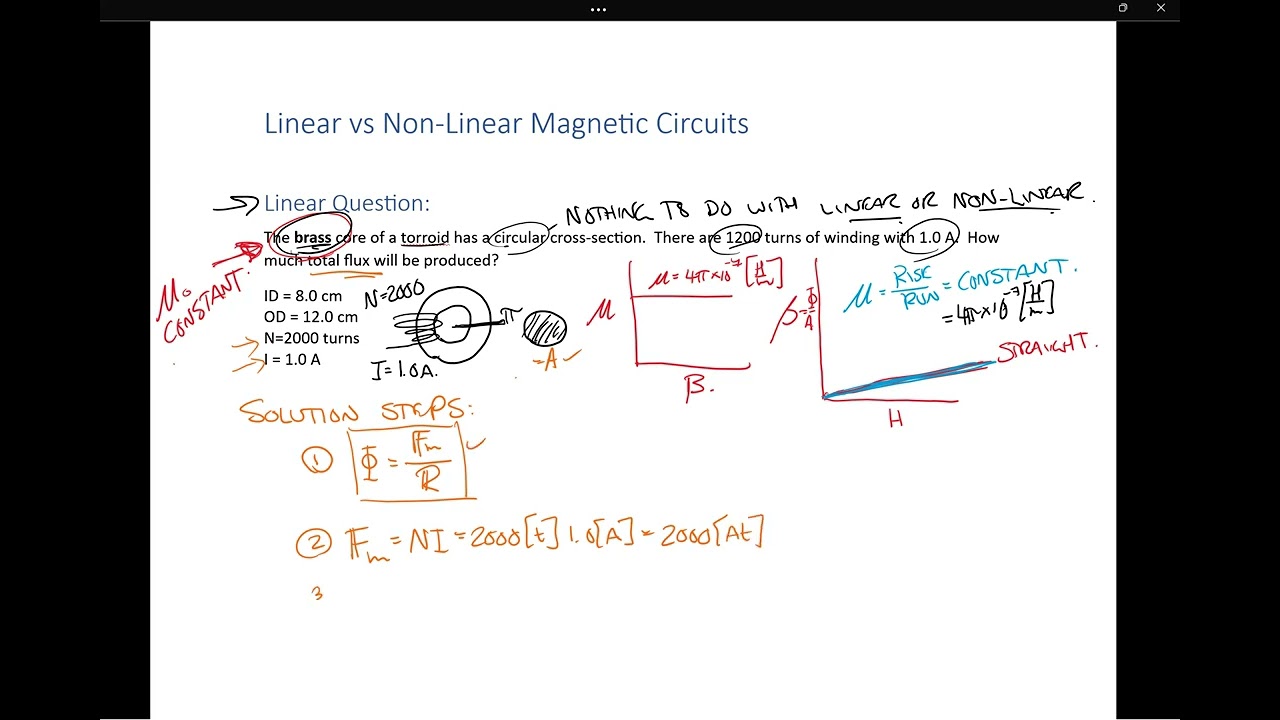 Linear vs Non-Linear Magnetic Circuits
Linear Question:
NOTHING TO DO WITH LINEAR OR NON-LINEAR.
The brass core of a torroid has a circular cross-section. There are 1200 turns of winding with 1.0 A. How
much total flux will be produced?
μ₀
CONSTANT.
ID = 8.0 cm
OD = 12.0 cm
N=2000 turns
I = 1.0 A
N=2000
I=1.0A.
=A ✓
μ = 4π×10⁻⁷ [H/m]
μ
B.
μ = RISE/RUN = CONSTANT.
= 4π×10⁻⁷ [H/m]
β = Φ/A
STRAIGHT.
H
SOLUTION STEPS:
① Φ = Fm/R ✓
② Fm = NI = 2000[t] 1.0[A] = 2000[At]
3